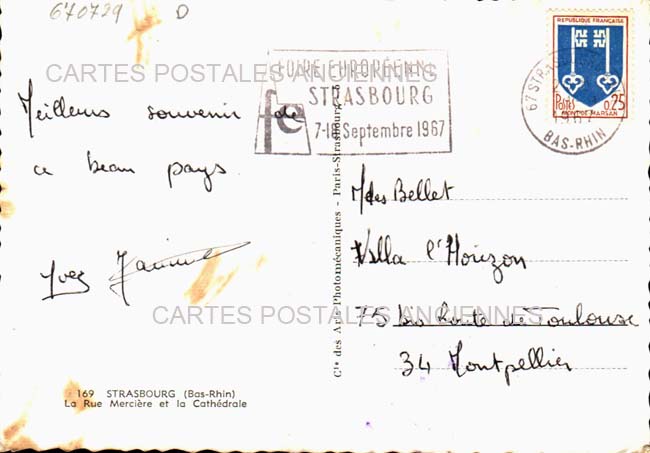 670729 D
CARTES POSTALES ANCIENNES
FOIRE EUROPÉENNE
STRASBOURG
7-18 Septembre 1967
fe
REPUBLIQUE FRANÇAISE
Postes 0,25
MONT-DE-MARSAN
67 STRASBOURG
BAS-RHIN
Meilleurs souvenir de
ce beau pays.
Yves
Cie des Arts Photomécaniques - Paris-Strasbourg
Mdes Bellet
Villa l'Horizon
75 bis Route de Toulouse
34 Montpellier
CARTES POSTALES ANCIENNES
169 STRASBOURG (Bas-Rhin)
La Rue Mercière et la Cathédrale